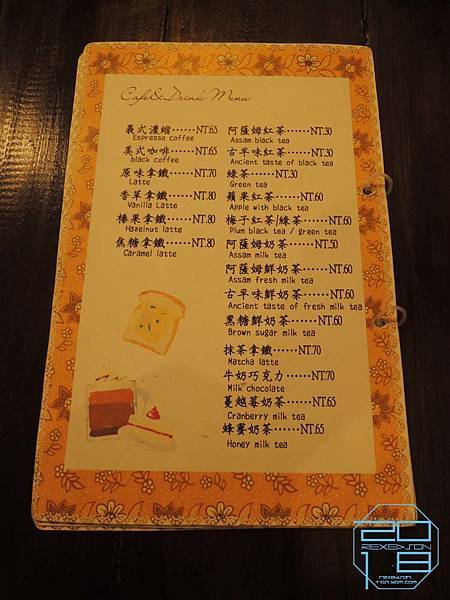 Cafe&Drink Menu
義式濃縮……NT.65
Espresso coffee
美式咖啡……NT.65
black coffee
原味拿鐵……NT.70
Latte
香草拿鐵……NT.80
Vanilla Latte
榛果拿鐵……NT.80
Hazelnut latte
焦糖拿鐵……NT.80
Caramel latte
阿薩姆紅茶……NT.30
Assam black tea
古早味紅茶……NT.30
Ancient taste of black tea
綠茶……NT.30
Green tea
蘋果紅茶……NT.60
Apple with black tea
梅子紅茶/綠茶……NT.60
Plum black tea / green tea
阿薩姆奶茶……NT.50
Assam milk tea
阿薩姆鮮奶茶……NT.60
Assam fresh milk tea
古早味鮮奶茶……NT.60
Ancient taste of fresh milk tea
黑糖鮮奶茶……NT.60
Brown sugar milk tea
抹茶拿鐵……NT.70
Matcha latte
牛奶巧克力……NT.70
Milk chocolate
蔓越莓奶茶……NT.65
Cranberry milk tea
蜂蜜奶茶……NT.65
Honey milk tea
2018
REXEDSON